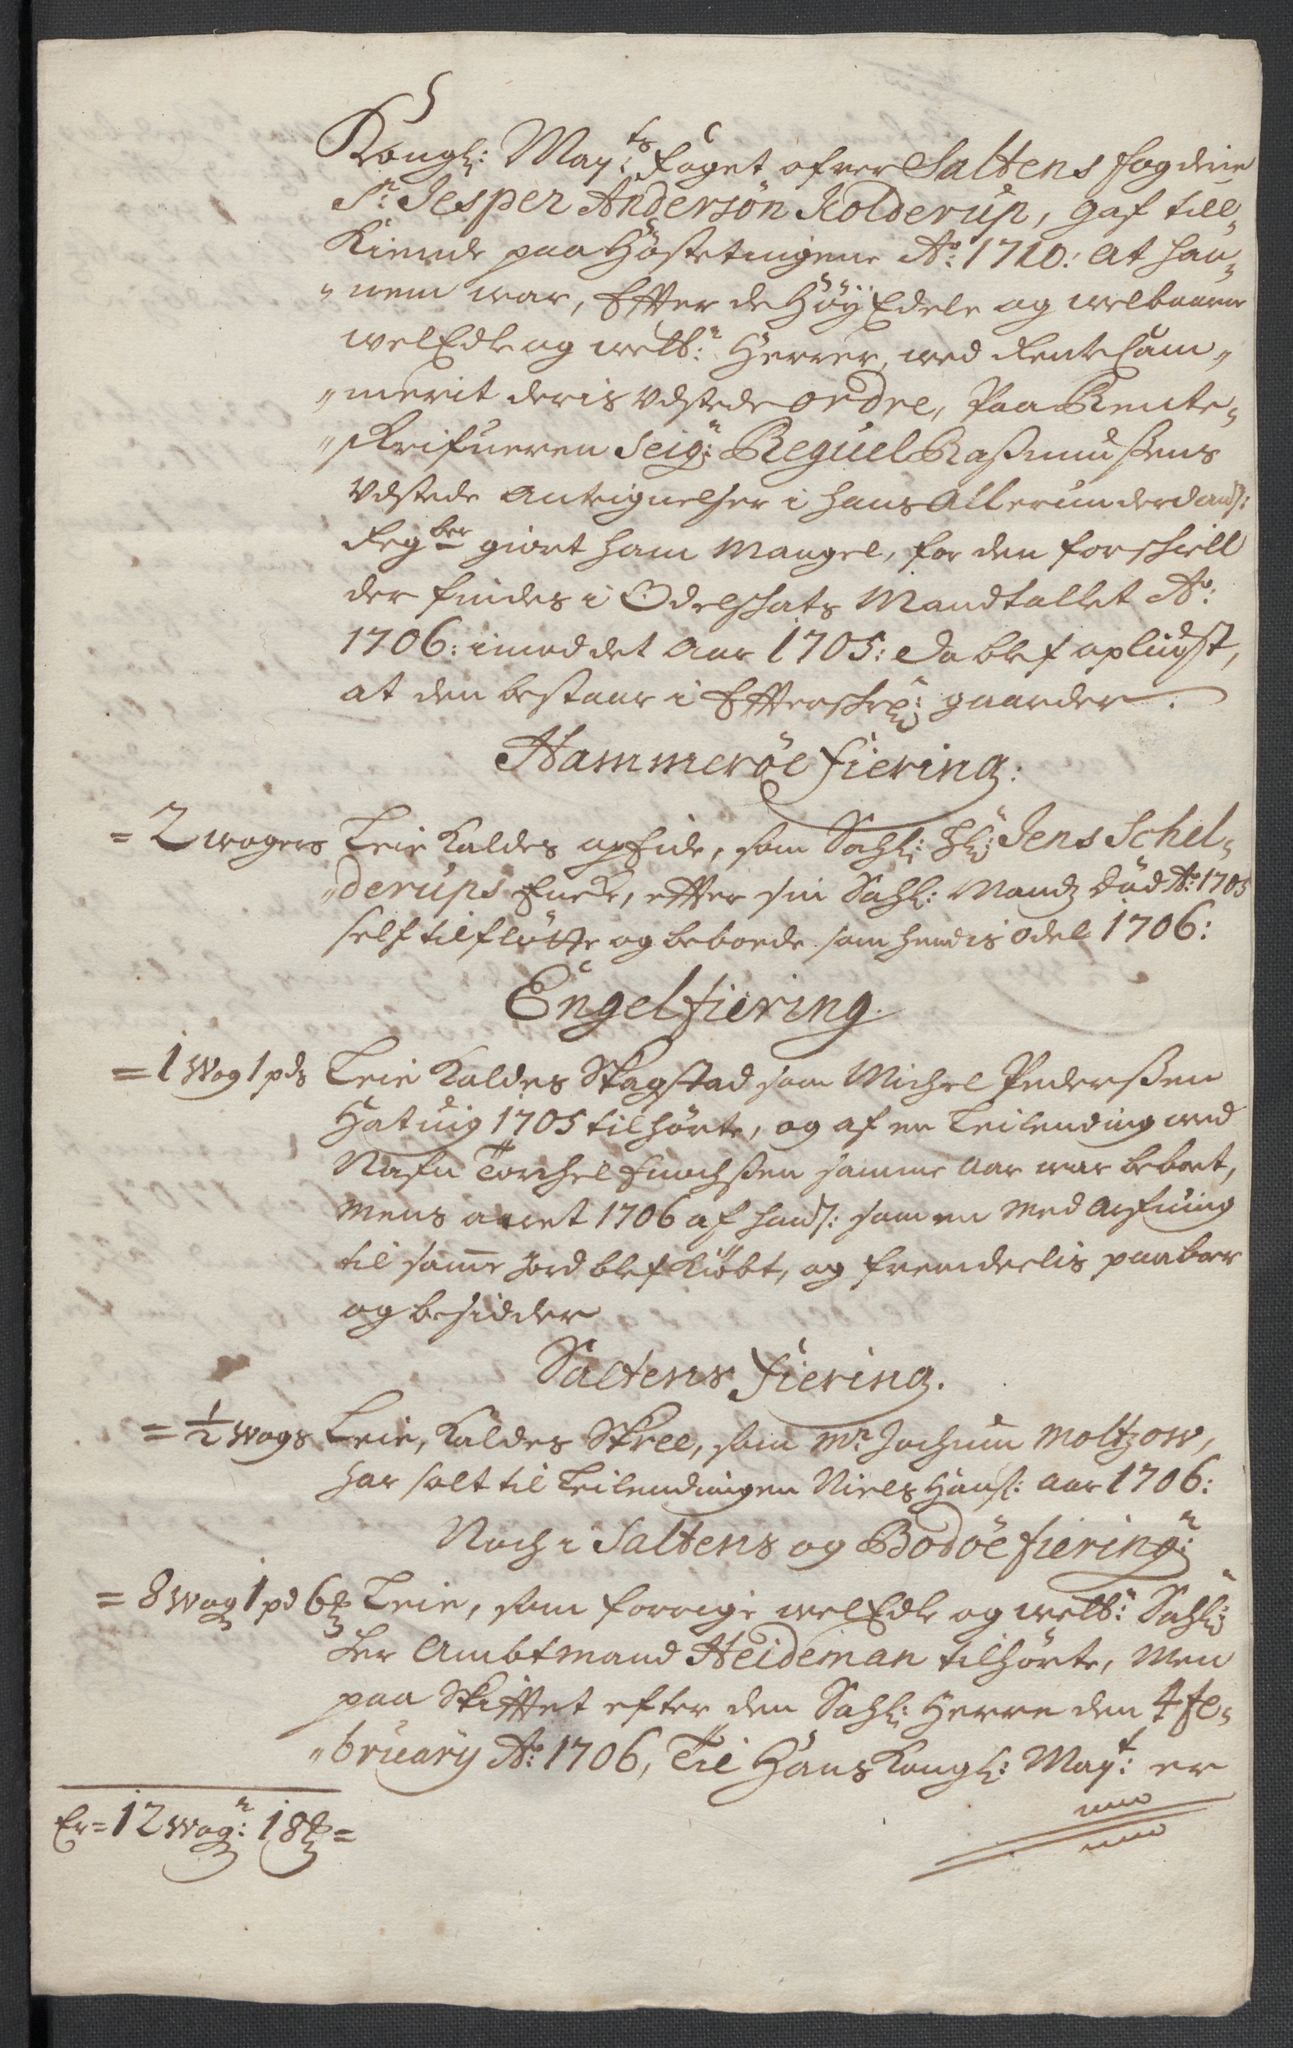 Kongl: May:ts Foget ofver Saltens fogderie
Sr. Jesper Andersøn Kolderup, gaf till„
Kiende paa Høstetingene Ao: 1710: At han„
„nem war, Efter de HøyEdele og welbaarne
welEdle og welb:n Herrer, wed Rentecam„
„merit deris Udstede ordre, Paa Rente„
„skrifueren Seig:n Reguel Rasmussens
Udstede Antegnelser i hans Allerunderdan:
Regber giort ham Mangel, for den forskiell
der findes i Odelschats Mandtallet Ao:
1706: imod det Aar 1705: Da blef oplyst,
at den bestaar i Efterschr: gaarder.
Hammerøe fiering:
= 2 woger Leie Kaldes opEide, som Sahl: Hr: Jens Schel„
„derups Encke, efter sin Sahl: Mandz Død Ao: 1705
self tilfløtte og beboede som hendis odel 1706:
Engelfiering.
= 1 Wog 1 pd Leie Kaldes Skagstad som Michel Pederssen
Hatuig 1705 tilhørte, og af en Leilending wed
Nafn Torchel Enochsen samme Aar war beboet,
Mens aaret 1706 af hand: som en Med Arfuing
til samme Jord blef kiøbt, og fremdeelis paaboer
og besidder
Saltens fiering.
= 1/2 wogs Leie, Kaldes Skree, som Mr. Jochum Moltzow,
har solt til Leilendingen Niels Hans: Aar 1706:
Noch i Saltens og Bodøe fiering:n
= 8 Wog 1 pd 6 ℔ Leie, som forrige welEdle og welb:n Sahl:
Her Ambtmand Heideman tilhørte, Men
paa Skifftet efter den Sahl: Herre den 4 Fe„
„bruary Ao: 1706, Til Hans Kongl: May:t er
Er = 12 Wog:n 18 ℔ =